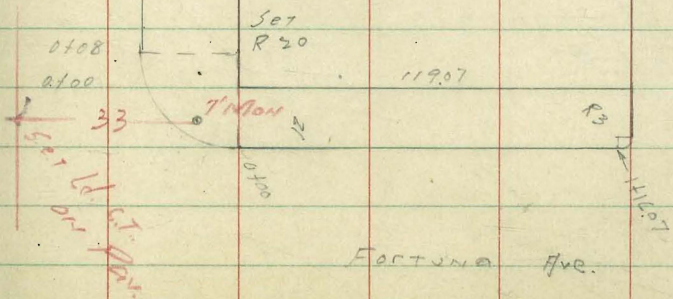 Set
R 20
0+08
0+00
119.07
33
7" Mon
R3
0+00
1+16.07
Set Ld. & T.
on Pav.
Fortuna Ave.